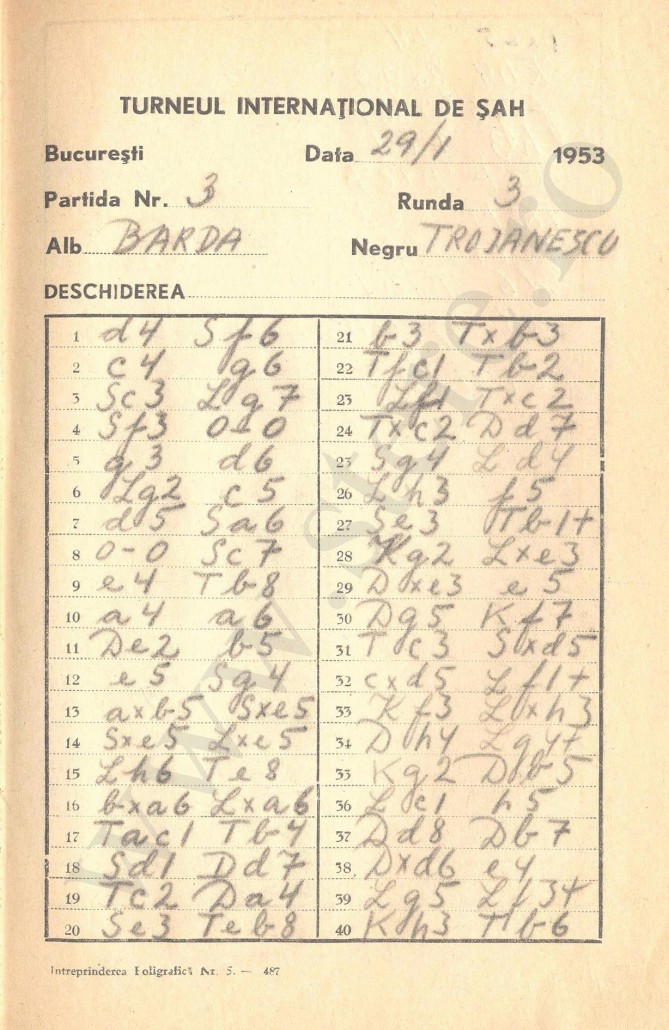 TURNEUL INTERNAŢIONAL DE ŞAH
Bucureşti Data 29/1 1953
Partida Nr. 3 Runda 3
Alb BARDA Negru TROJANESCU
DESCHIDEREA
1 d4 Sf6 21 b3 Txb3
2 c4 g6 22 Tfc1 Tb2
3 Sc3 Lg7 23 Lf1 Txc2
4 Sf3 0-0 24 Txc2 Dd7
5 g3 d6 25 Sg4 Ld4
6 Lg2 c5 26 Lh3 f5
7 d5 Sa6 27 Se3 Tb1+
8 0-0 Sc7 28 Kg2 Lxe3
9 e4 Tb8 29 Dxe3 e5
10 a4 a6 30 Dg5 Kf7
11 De2 b5 31 Tc3 Sxd5
12 e5 Sg4 32 cxd5 Lf1+
13 axb5 Sxe5 33 Kf3 Lxh3
14 Sxe5 Lxe5 34 Dh4 Lg4+
15 Lh6 Te8 35 Kg2 Db5
16 bxa6 Lxa6 36 Lc1 h5
17 Tac1 Tb4 37 Dd8 Db7
18 Sd1 Dd7 38 Dxd6 e4
19 Tc2 Da4 39 Lg5 Lf3+
20 Se3 Teb8 40 Kh3 Tb6
Intreprinderea Poligrafică Nr. 5. — 487
www.stere.ro